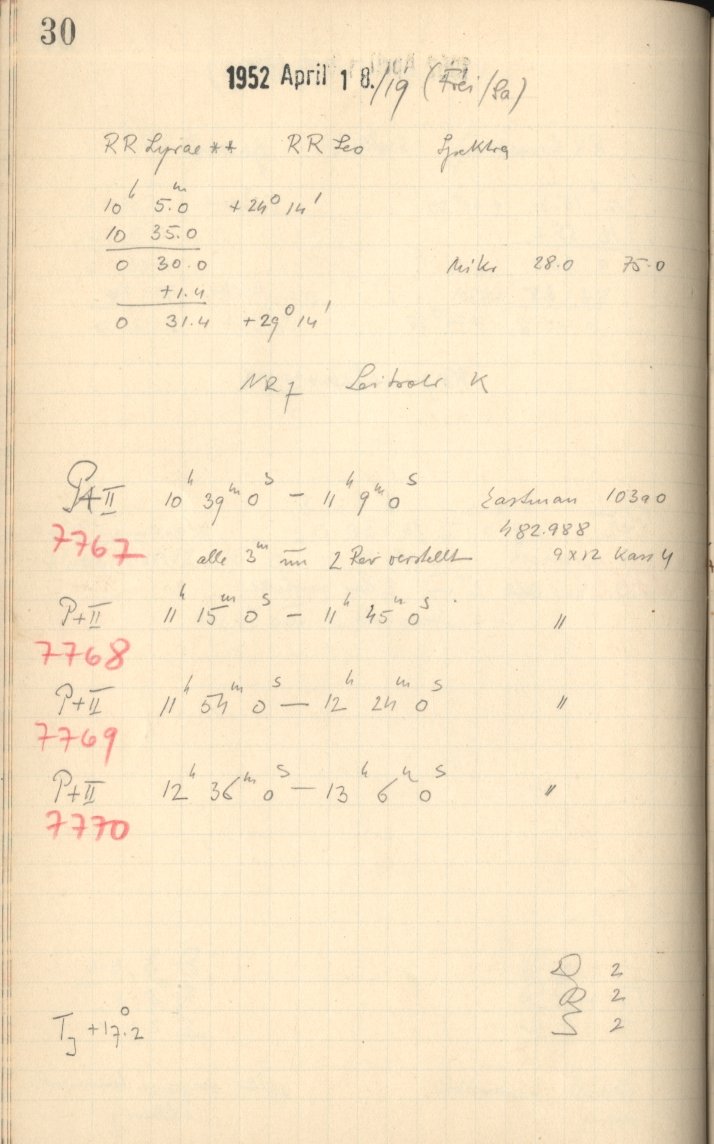 30
1952 April 18./19 (Frei/Sa)
RR Lyrae ** RR Leo Spektra
10h 5.0m +24° 14'
10 35.0
0 30.0 Mikr 28.0 75.0
+1.4
0 31.4 +29° 14'
NR 7 Leitrohr K
P+II 10h 39m 0s — 11h 9m 0s Eastman 103a0
7767 482.988
alle 3m um 2 Rev verstellt 9x12 Kass 4
P+II 11h 15m 0s — 11h 45m 0s "
7768
P+II 11h 54m 0s — 12h 24m 0s "
7769
P+II 12h 36m 0s — 13h 6m 0s "
7770
D 2
R 2
S 2
TJ +17°.2